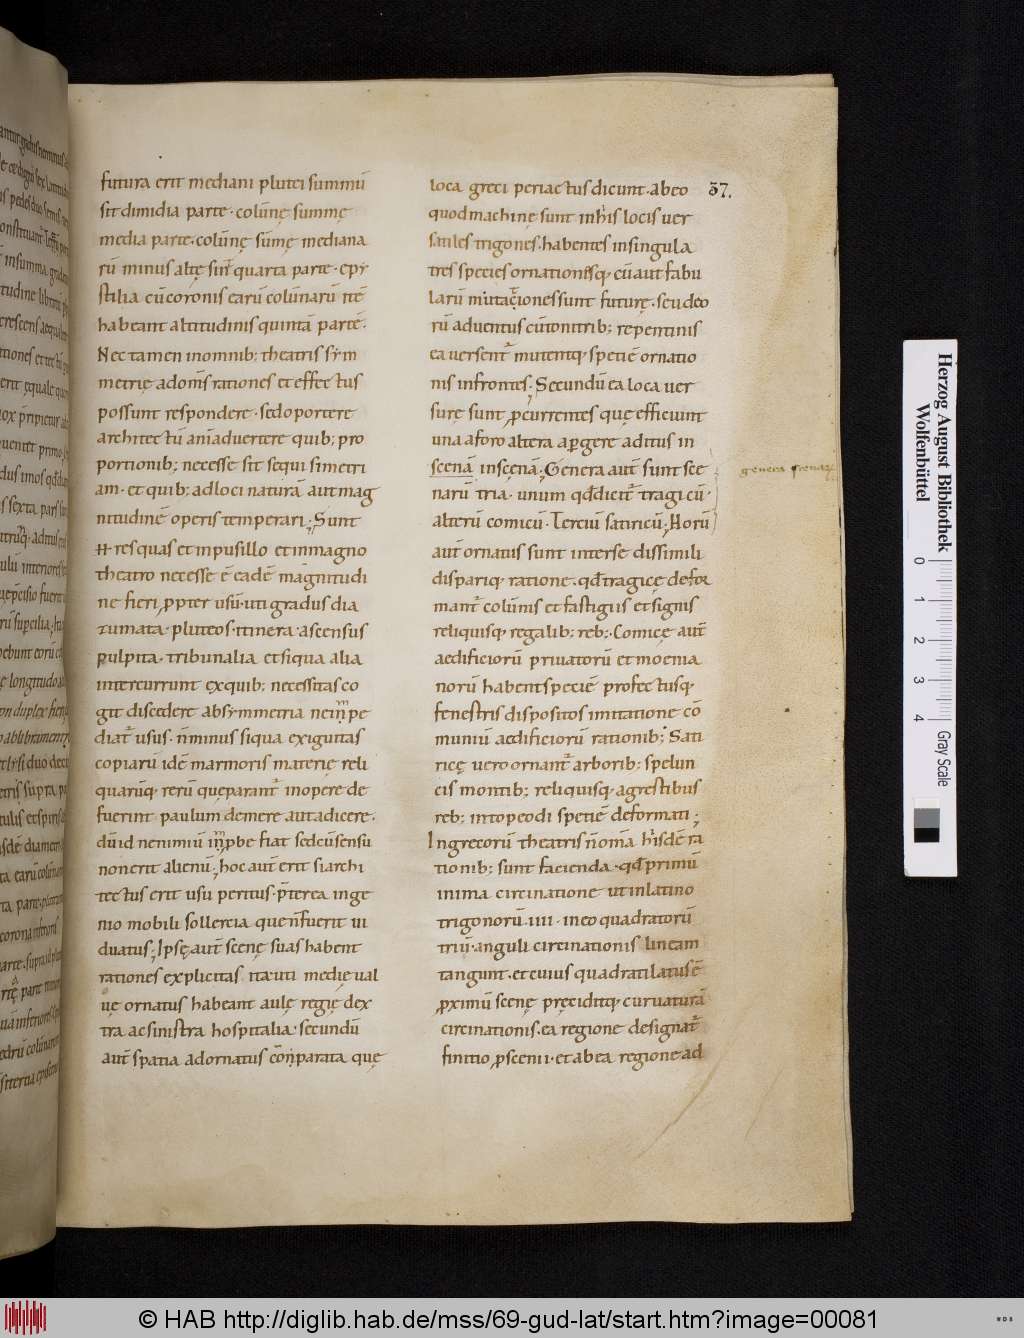 futura erit mediani plutei summū
sit dimidia parte · colūnę summę
media parte · colūnę sūmę mediana
rū minus altę sint quarta parte · epy
stilia cū coronis earū colūnarū itē
habeant altitudinis quintā partē ·
Nec tamen inomnib; theatris sym
metrię adom̄s rationes et effectus
possunt respondere · sedoportere
architectū aniaduertere quib; pro
portionib; necesse sit sequi simetri
am · et quib; adloci naturam aut mag
nitudinē operis temperari · Sunt
res quas et inpusillo et inmagno
theatro necesse ē eadē magnitudi
ne fieri ꝓpter usū · uti gradus dia
zumata · pluteos · itinera · ascensus
pulpita · tribunalia et siqua alia
intercurrunt ex quib; necessitas co
git discedere absymmetria neinpe
diat᷑ usus · n̄minus siqua exiguitas
copiarū idē marmoris materię reli
quarūq· rerū quę parant᷑ inopere de
fuerint paulum demere aut adicere ·
dū id nenimiū inpbe fiat sed cū sensu
non erit alienū · hoc aut̄ erit si archi
tectus erit usu peritus · p̄terea inge
nio mobili sollercia que n̄ fuerit ui
duatus · Ipsę aut̄ scenę suas habent
rationes explicitas ita · uti medię val
uę ornatus habeant aulę regię dex
tra ac sinistra hospitalia · secundū
aut̄ spatia adornatus conparata quę
loca greci periactus dicunt · abeo 37.
quod machinę sunt inhis locis uer
satiles trigones · habentes insingula
tres species ornationisq· cū aut fabu
larū mutationes sunt futurę · seu deo
rū aduentus cū tonitrib; repentinis
ea uersent᷑ mutentq· spetiē ornatio
nis infrontes · Secundū ea loca uer
surę sunt ꝓcurrentes quę efficiunt
una aforo altera aꝑgere aditus in
scenā inscenā · Genera aut̄ sunt sce
genera scenarū
narū tria · unum qd̄ dicit᷑ tragicū ·
alterū comicū · Terciū satiricū · Horū
aut̄ ornatus sunt interse dissimili
dispariq· ratione · qd̄ tragicę defor
mant᷑ colūnis et fastigiis et signis
reliquisq· regalib; reb; · Comicę aut̄
aedificiorū priuatorū et moenia
norū habent speciē profectusq·
fenestris dispositos imitatione cō
muniū aedificiorū rationib; Sati
ricę uero ornant᷑ arborib; spelun
cis montib; reliquisq· agrestibus
reb; intopeodi spetiē deformati ;
Ingrecorū theatris n̄ om̄a hisdē ra
tionib; sunt facienda · qd̄ primū
inima circinatione ut inlatino
trigonorū · IIII · ineo quadratorū
triū · anguli circinationis lineam
tangunt · et cuius quadrati latus ē
ꝓximū scenę pręciditq· curuaturā
circinationis · ea regione designat᷑
finitio ꝓscenii · et abea regione ad
Herzog August Bibliothek
Wolfenbüttel
0 1 2 3 4
Gray Scale
© HAB http://diglib.hab.de/mss/69-gud-lat/start.htm?image=00081